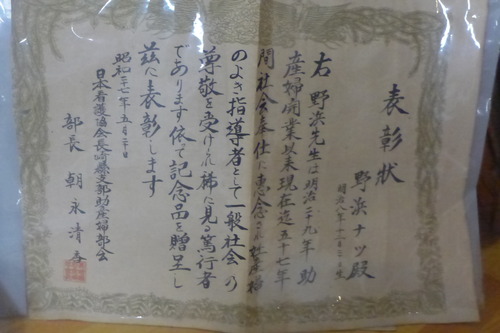 表彰状
野浜ナツ殿
明治八年十一月三日生
右野浜先生は明治二十九年助
産婦開業以来現在迄五十七年
間社会奉仕に専念され社産婦
のよき指導者として一般社会の
尊敬を受けられ稀に見る篤行者
であります依て記念品を贈呈し
茲に表彰します
昭和二十七年五月二十日
日本看護協会長崎県支部助産婦部会
部長 朝永清春